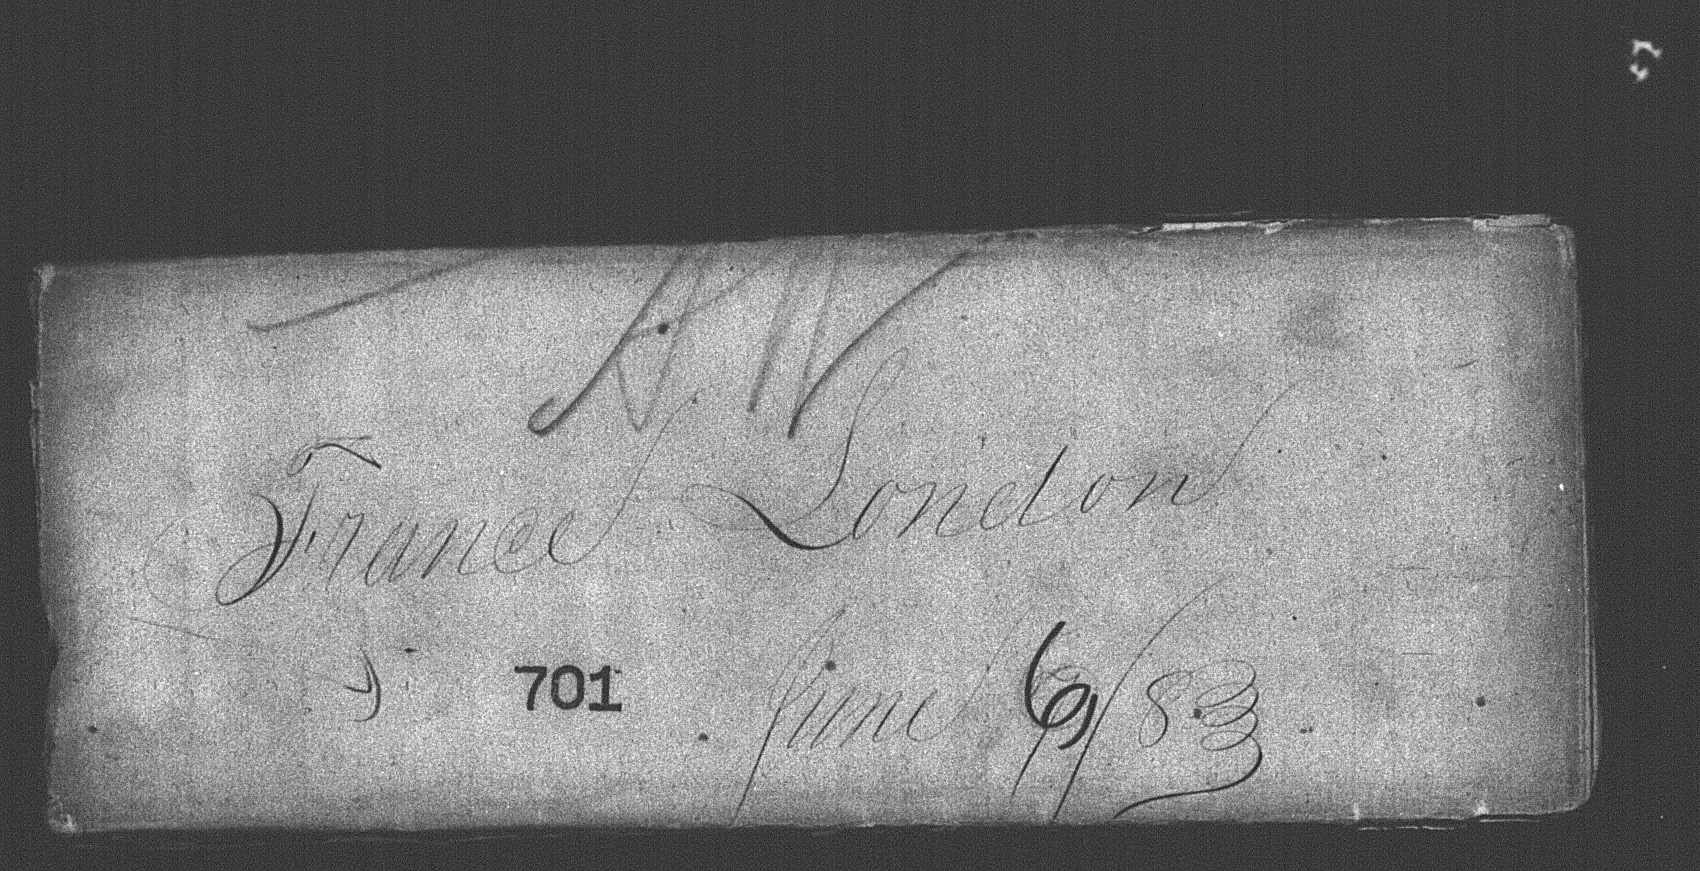 France London
701 June 6/83